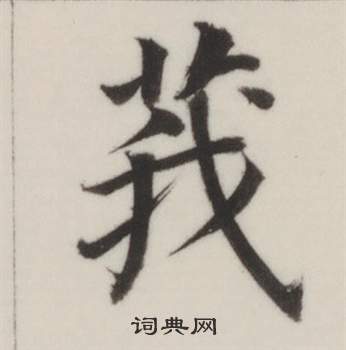 莪
词典网